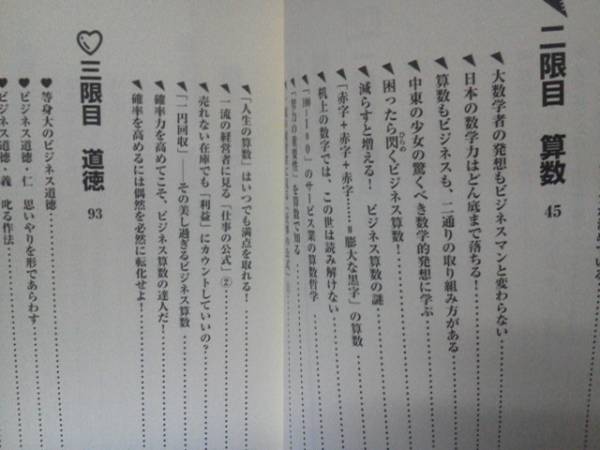 二限目 算数 45
大数学者の発想もビジネスマンと変わらない
日本の数学力はどん底まで落ちる!
算数もビジネスも、二通りの取り組み方がある
中東の少女の驚くべき数学的発想に学ぶ
困ったら閃くビジネス算数!
ひらめ
減らすと増える! ビジネス算数の謎
「赤字+赤字+赤字……=膨大な黒字」の算数
机上の数字では、この世は読み解けない
のサービス業の算数哲学
「努力の重要性」を算数で知る
「人生の算数」はいつでも満点を取れる!
一流の経営者に見る「仕事の公式」②
売れない在庫でも「利益」にカウントしていいの?
「一円回収」——その美し過ぎるビジネス算数
確率力を高めてこそ、ビジネス算数の達人だ!
確率を高めるには偶然を必然に転化せよ!
三限目 道徳 93
等身大のビジネス道徳
ビジネス道徳・仁 思いやりを形であらわす
ビジネス道徳・義 叱る作法